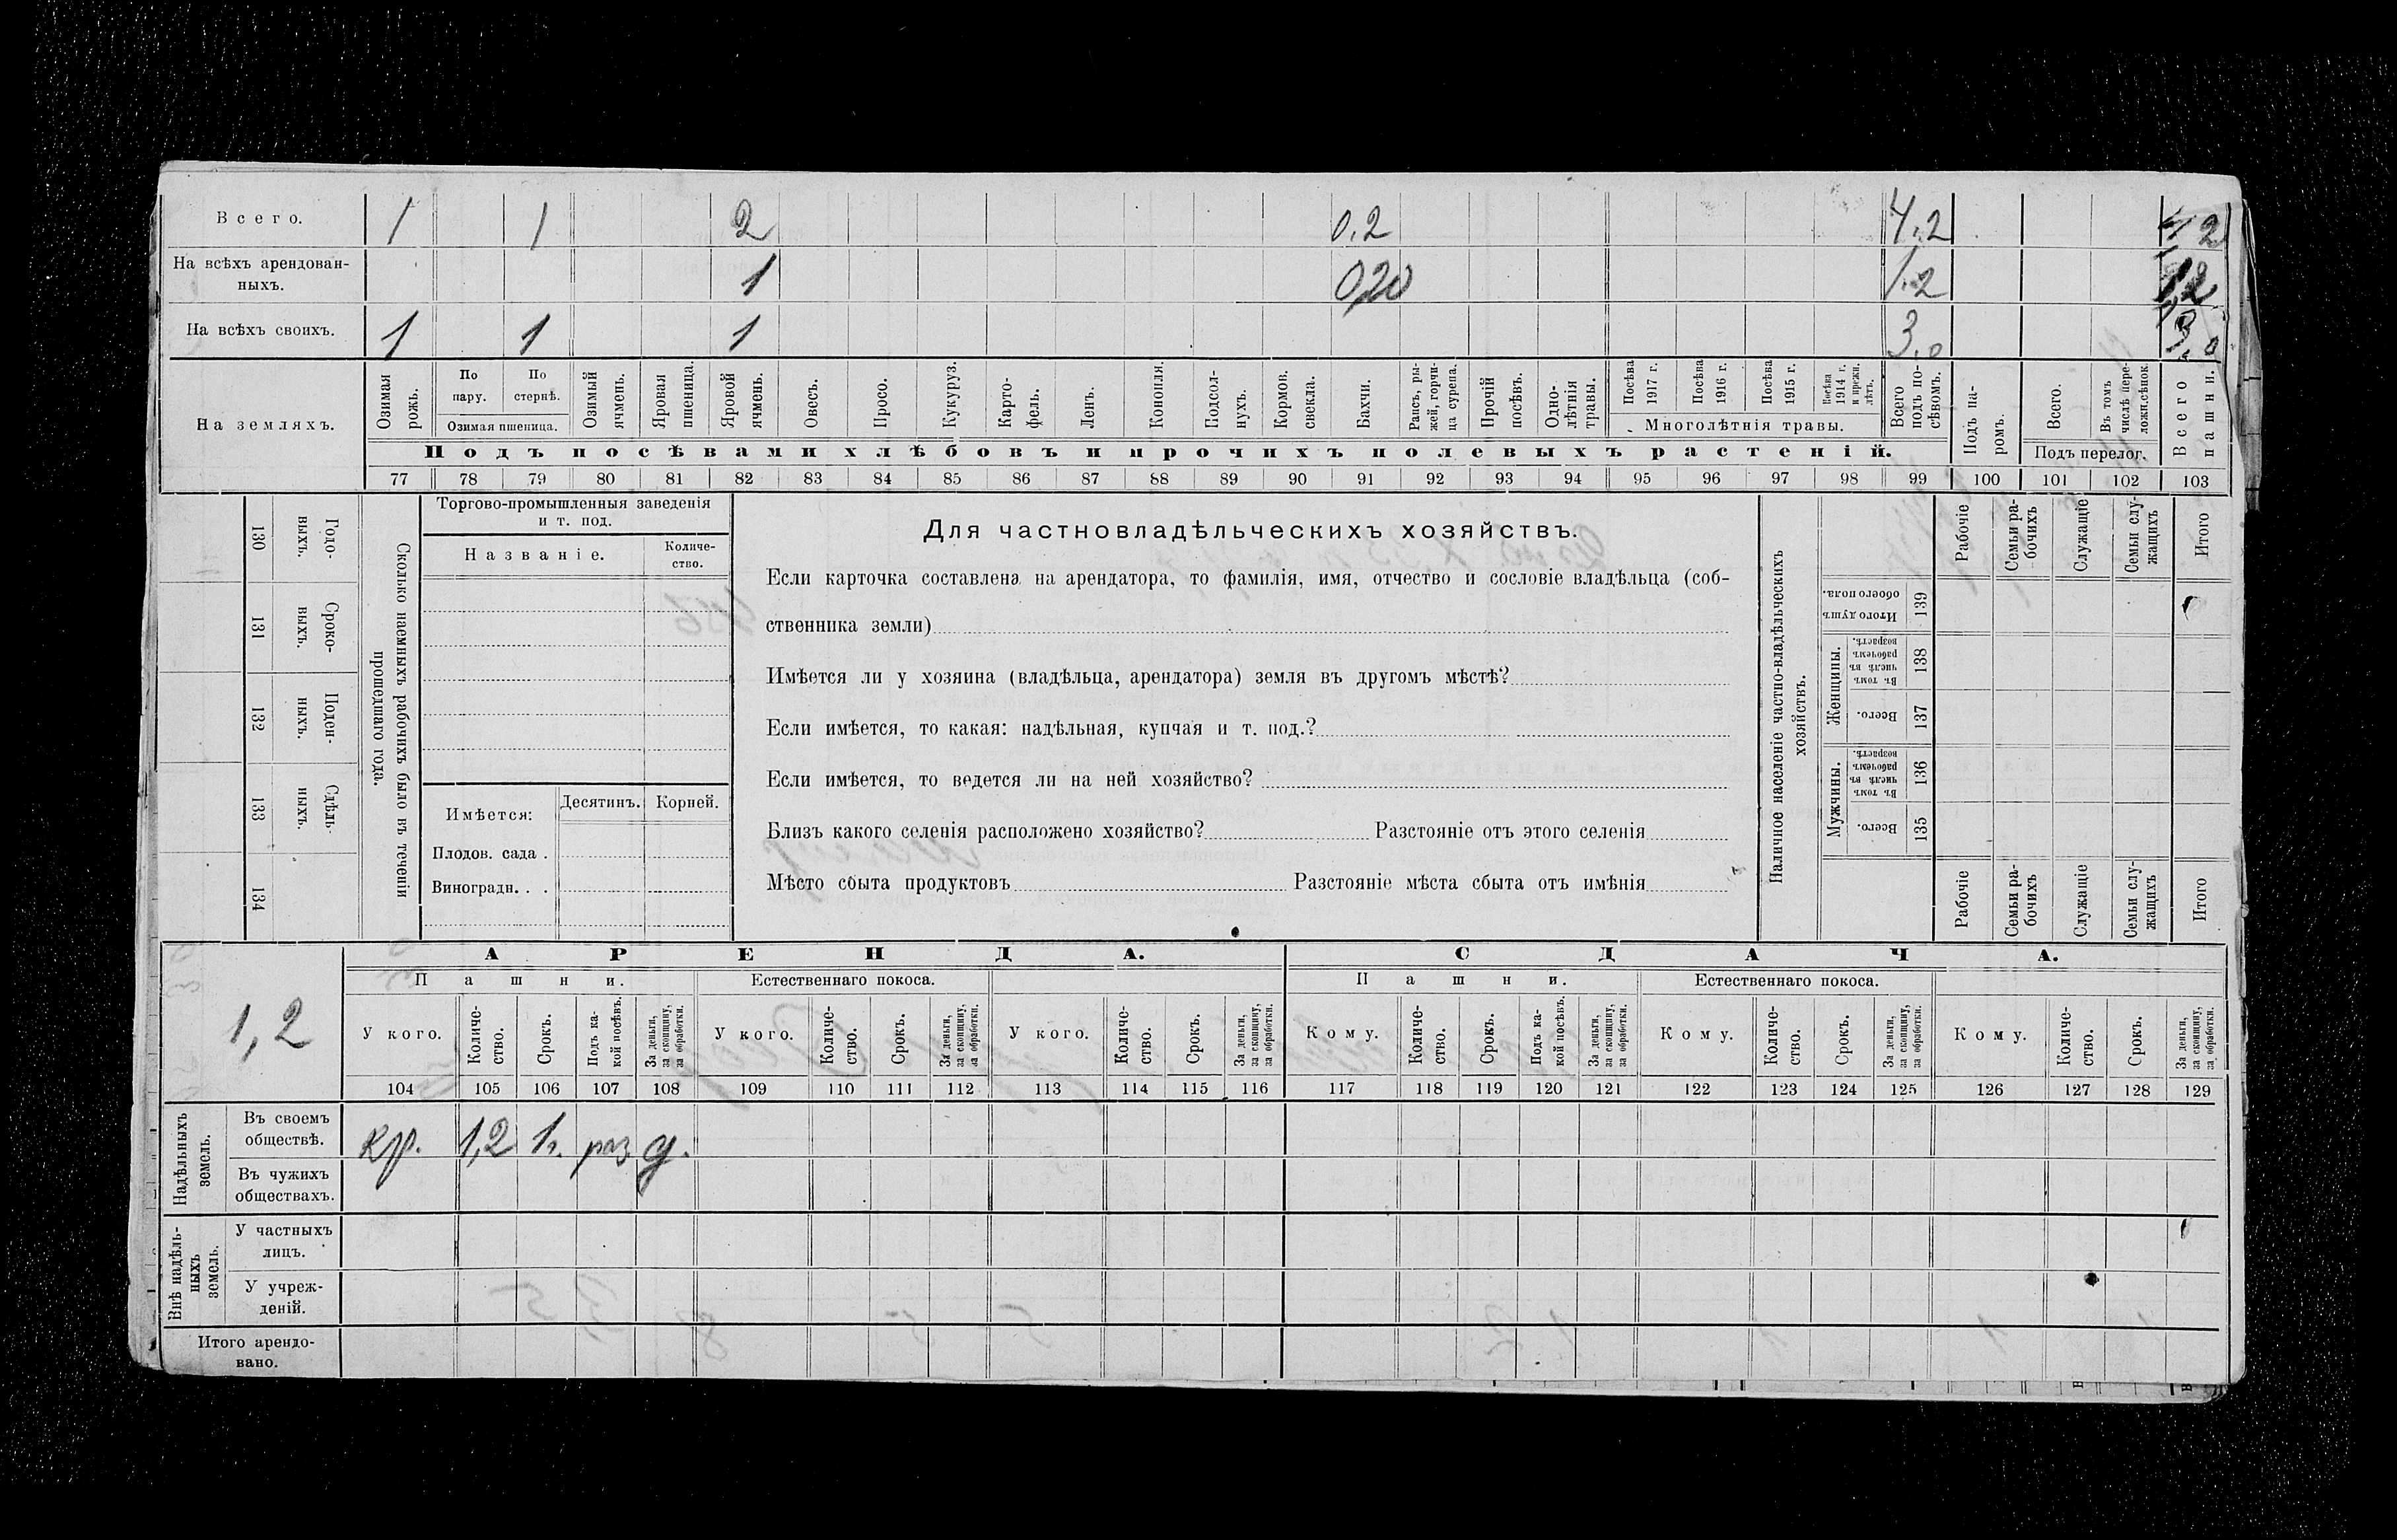 Всего. 1 1 2 0,2 4.2 4 2
На всѣхъ арендован-
ныхъ. 1 0,20 1.2 1,2
На всѣхъ своихъ. 1 1 1 3.0 3.0
На земляхъ.
Озимая
рожь.
По
пару.
По
стернѣ.
Озимая пшеница.
Озимый
ячмень.
Яровая
пшеница.
Яровой
ячмень.
Овесъ.
Просо.
Кукуруз.
Карто-
фель.
Ленъ.
Конопля.
Подсол-
нухъ.
Кормов.
свекла.
Бахчи.
Рапсъ, ры-
жей, горчи-
ца сурепа.
Прочій
посѣвъ.
Одно-
лѣтнія
травы.
Посѣва
1917 г.
Посѣва
1916 г.
Посѣва
1915 г.
Посѣва
1914 г.
и прежн.
лѣтъ.
Многолѣтнія травы.
Всего
подъ по-
сѣвомъ.
Подъ па-
ромъ.
Всего.
Въ томъ
числѣ пере-
ложн.сѣнок.
Подъ перелог.
Всего
пашни.
Подъ посѣвами хлѣбовъ и прочихъ полевыхъ растеній.
77 78 79 80 81 82 83 84 85 86 87 88 89 90 91 92 93 94 95 96 97 98 99 100 101 102 103
130 Годо-
выхъ.
131 Сроко-
выхъ.
132 Поден-
ныхъ.
133 Сдѣль-
ныхъ.
134
Сколько наемныхъ рабочихъ было въ теченіи
прошедшаго года.
Торгово-промышленныя заведенія
и т. под.
Названіе.
Количе-
ство.
Имѣется: Десятинъ. Корней.
Плодов. сада .
Виноградн. . .
Для частновладѣльческихъ хозяйствъ.
Если карточка составлена на арендатора, то фамилія, имя, отчество и сословіе владѣльца (соб-
ственника земли)
Имѣется ли у хозяина (владѣльца, арендатора) земля въ другомъ мѣстѣ?
Если имѣется, то какая: надѣльная, купчая и т. под.?
Если имѣется, то ведется ли на ней хозяйство?
Близъ какого селенія расположено хозяйство? Разстояніе отъ этого селенія
Мѣсто сбыта продуктовъ Разстояніе мѣста сбыта отъ имѣнія
Наличное населеніе частно-владѣльческихъ
хозяйствъ.
Рабочіе
Семьи ра-
бочихъ
Служащіе
Семьи слу-
жащихъ
Итого
Итого душ
обоего пола.
139
Женщины.
Въ томъ
числѣ въ
рабочемъ
возрастѣ.
138
Всего.
137
Мужчины.
Въ томъ
числѣ въ
рабочемъ
возрастѣ.
136
Всего.
135
Рабочіе
Семьи ра-
бочихъ
Служащіе
Семьи слу-
жащихъ
Итого
1,2
АРЕНДА. СДАЧА.
Пашни. Естественнаго покоса. Пашни. Естественнаго покоса.
У кого.
Количе-
ство.
Срокъ.
Подъ ка-
кой посѣвъ.
За деньги,
за скопщину,
за обработки.
У кого.
Количе-
ство.
Срокъ.
За деньги,
за скопщину,
за обработки.
У кого.
Количе-
ство.
Срокъ.
За деньги,
за скопщину,
за обработки.
Кому.
Количе-
ство.
Срокъ.
Подъ ка-
кой посѣвъ.
За деньги,
за скопщину,
за обработки.
Кому.
Количе-
ство.
Срокъ.
За деньги,
за скопщину,
за обработки.
Кому.
Количе-
ство.
Срокъ.
За деньги,
за скопщину,
за обработки.
104 105 106 107 108 109 110 111 112 113 114 115 116 117 118 119 120 121 122 123 124 125 126 127 128 129
Надѣльныхъ
земель.
Въ своемъ
обществѣ. кр. 1,2 1г. раз. д.
Въ чужихъ
обществахъ.
Внѣ надѣль-
ныхъ
земель.
У частныхъ
лицъ.
У учреж-
деній.
Итого арендо-
вано.